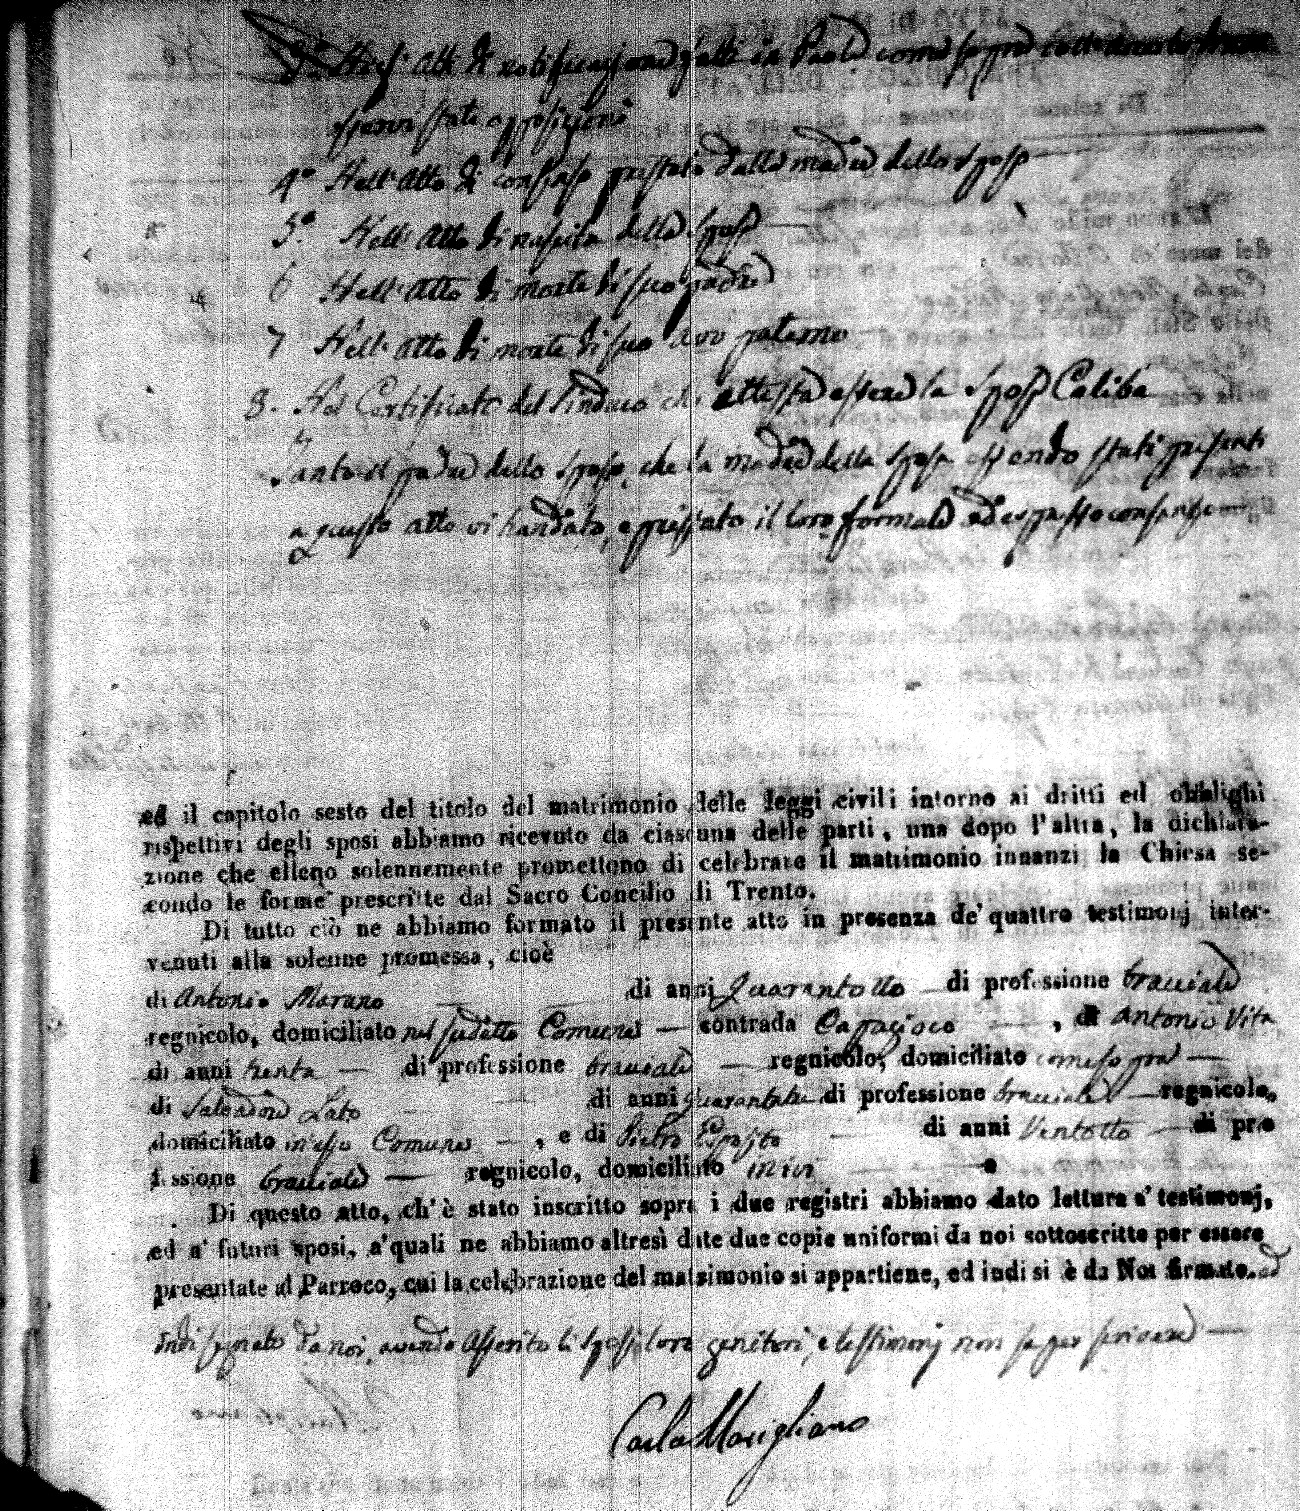 3.° Negl' atti di notificazione fatti in Paola come sopra
esservi state opposizioni
4.° Nell' Atto di consenso prestato dalla madre dello sposo
5.° Nell' Atto di nascita della sposa
6 Nell' Atto di morte di suo padre
7 Nell' Atto di morte di suo avo paterno
8. Nel Certificato del Sindaco che attesta essere la sposa
Tanto il padre dello sposo, che la madre della sposa essendo stati presenti
a questo atto vi han dato, e prestato il loro formale ed espresso consenso
ed il capitolo sesto del titolo del matrimonio delle leggi civili intorno ai dritti ed obblighi
rispettivi degli sposi abbiamo ricevuto da ciascuna delle parti, una dopo l'altra, la dichiara-
zione che elleno solennemente promettono di celebrare il matrimonio innanzi la Chiesa se-
condo le forme prescritte dal Sacro Concilio di Trento.
Di tutto ciò ne abbiamo formato il presente atto in presenza de' quattro testimonj inter-
venuti alla solenne promessa, cioè
di Antonio Marano di anni Quarantotto di professione bracciale
regnicolo, domiciliato nel sudetto Comune contrada , di Antonio Vita
di anni trenta di professione bracciale regnicolo, domiciliato come sopra
di Salvadore Lato di anni di professione bracciale regnicolo,
domiciliato in esso Comune , e di Pietro Esposito di anni Ventotto di pro
fessione bracciale regnicolo, domiciliato ivi
Di questo atto, ch'è stato inscritto sopra i due registri abbiamo dato lettura a' testimonj,
ed a' futuri sposi, a' quali ne abbiamo altresì date due copie uniformi da noi sottoscritte per essere
presentate al Parroco, cui la celebrazione del matrimonio si appartiene, ed indi si è da Noi firmato. ed
Indi segnato da noi, avendo asserito li sposi, loro genitori, e testimonj non saper scrivere
Carlo Marigliano